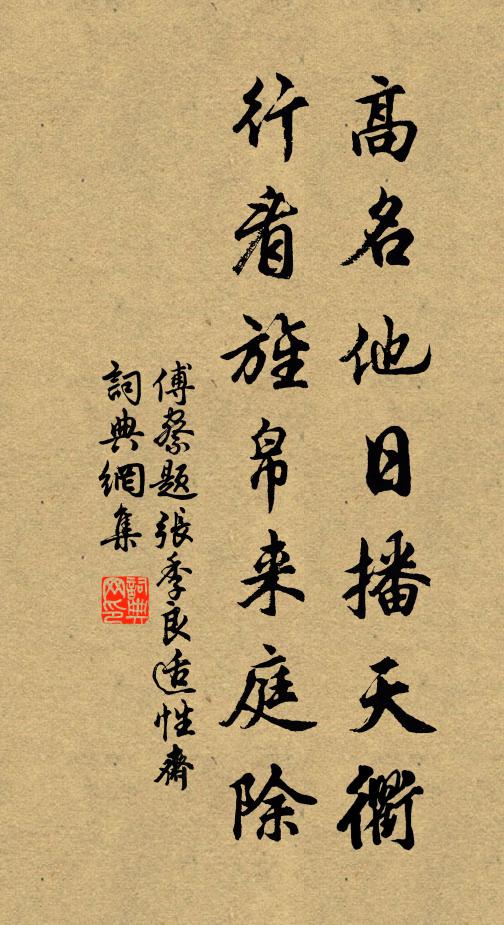 高名他日播天衢
行看旌帛来庭除
傅察题張季良适性齋
詞典網集
詞典网印